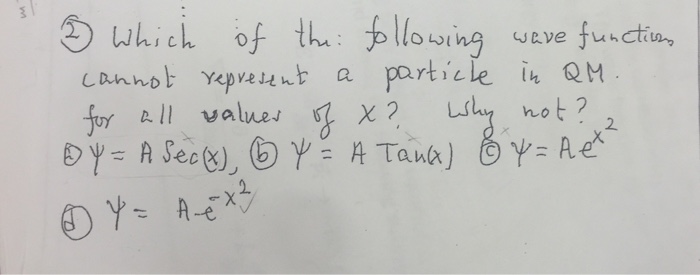 ② Which of the: following wave function,
cannot represent a particle in QM.
for all values of x? Why not?
ⓐ Ψ = A Sec(x), ⓑ Ψ = A Tan(x) ⓒ Ψ = A e^x^2
ⓓ Ψ = A e^-x^2 ✓